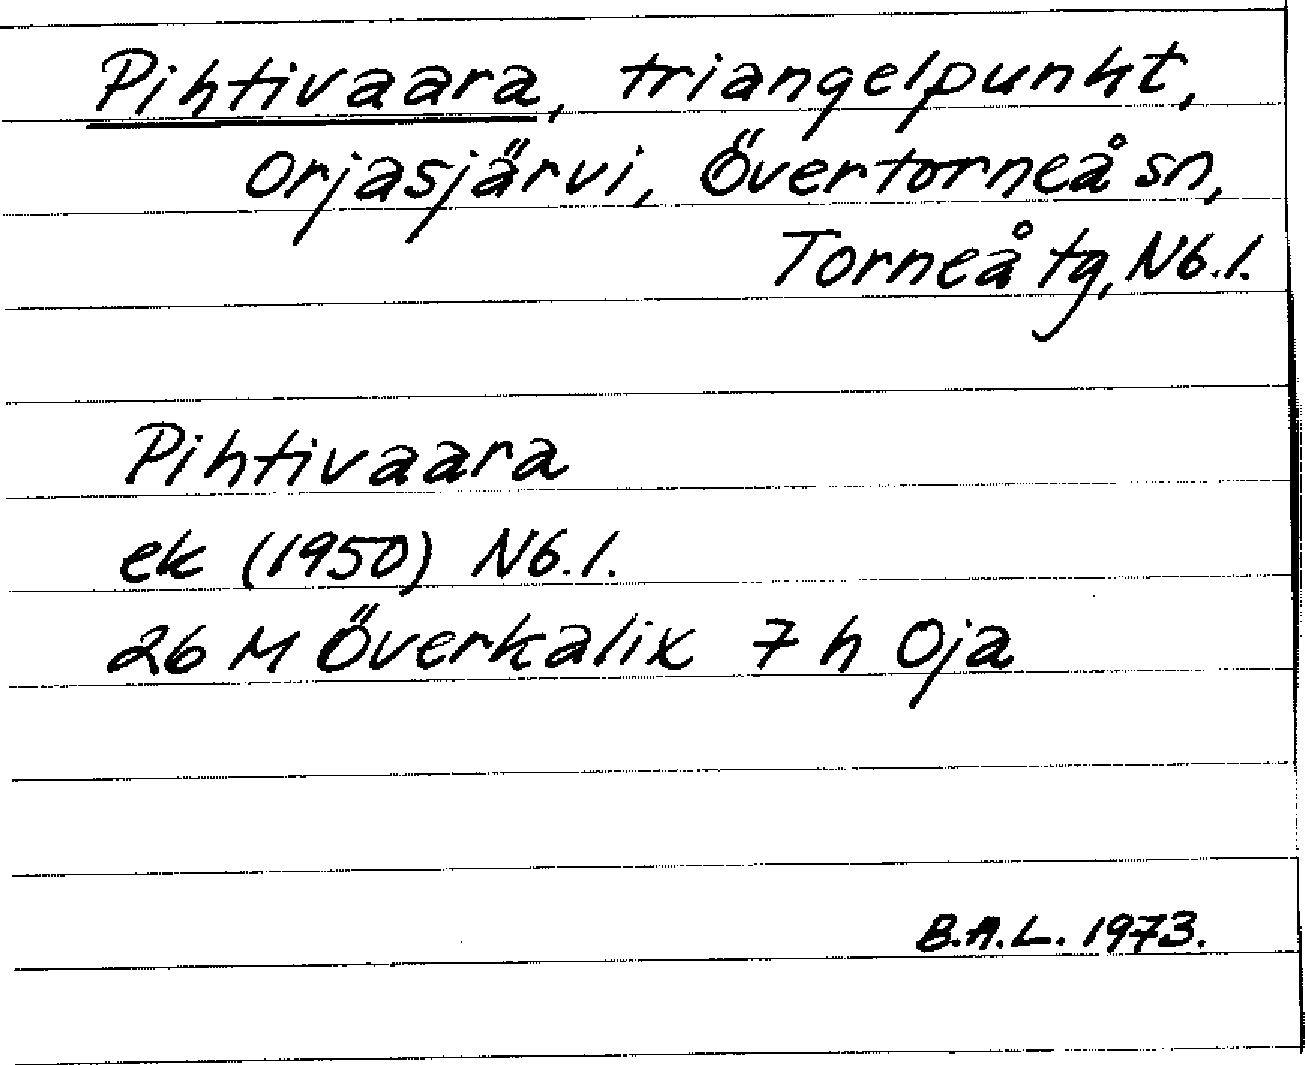 Pihtivaara, triangelpunkt,
Orjasjärvi, Övertorneå sn,
Torneå tg, Nb.l.
Pihtivaara
ek (1950) Nb.l.
26 M Överkalix 7 h Oja
B.A.L. 1973.